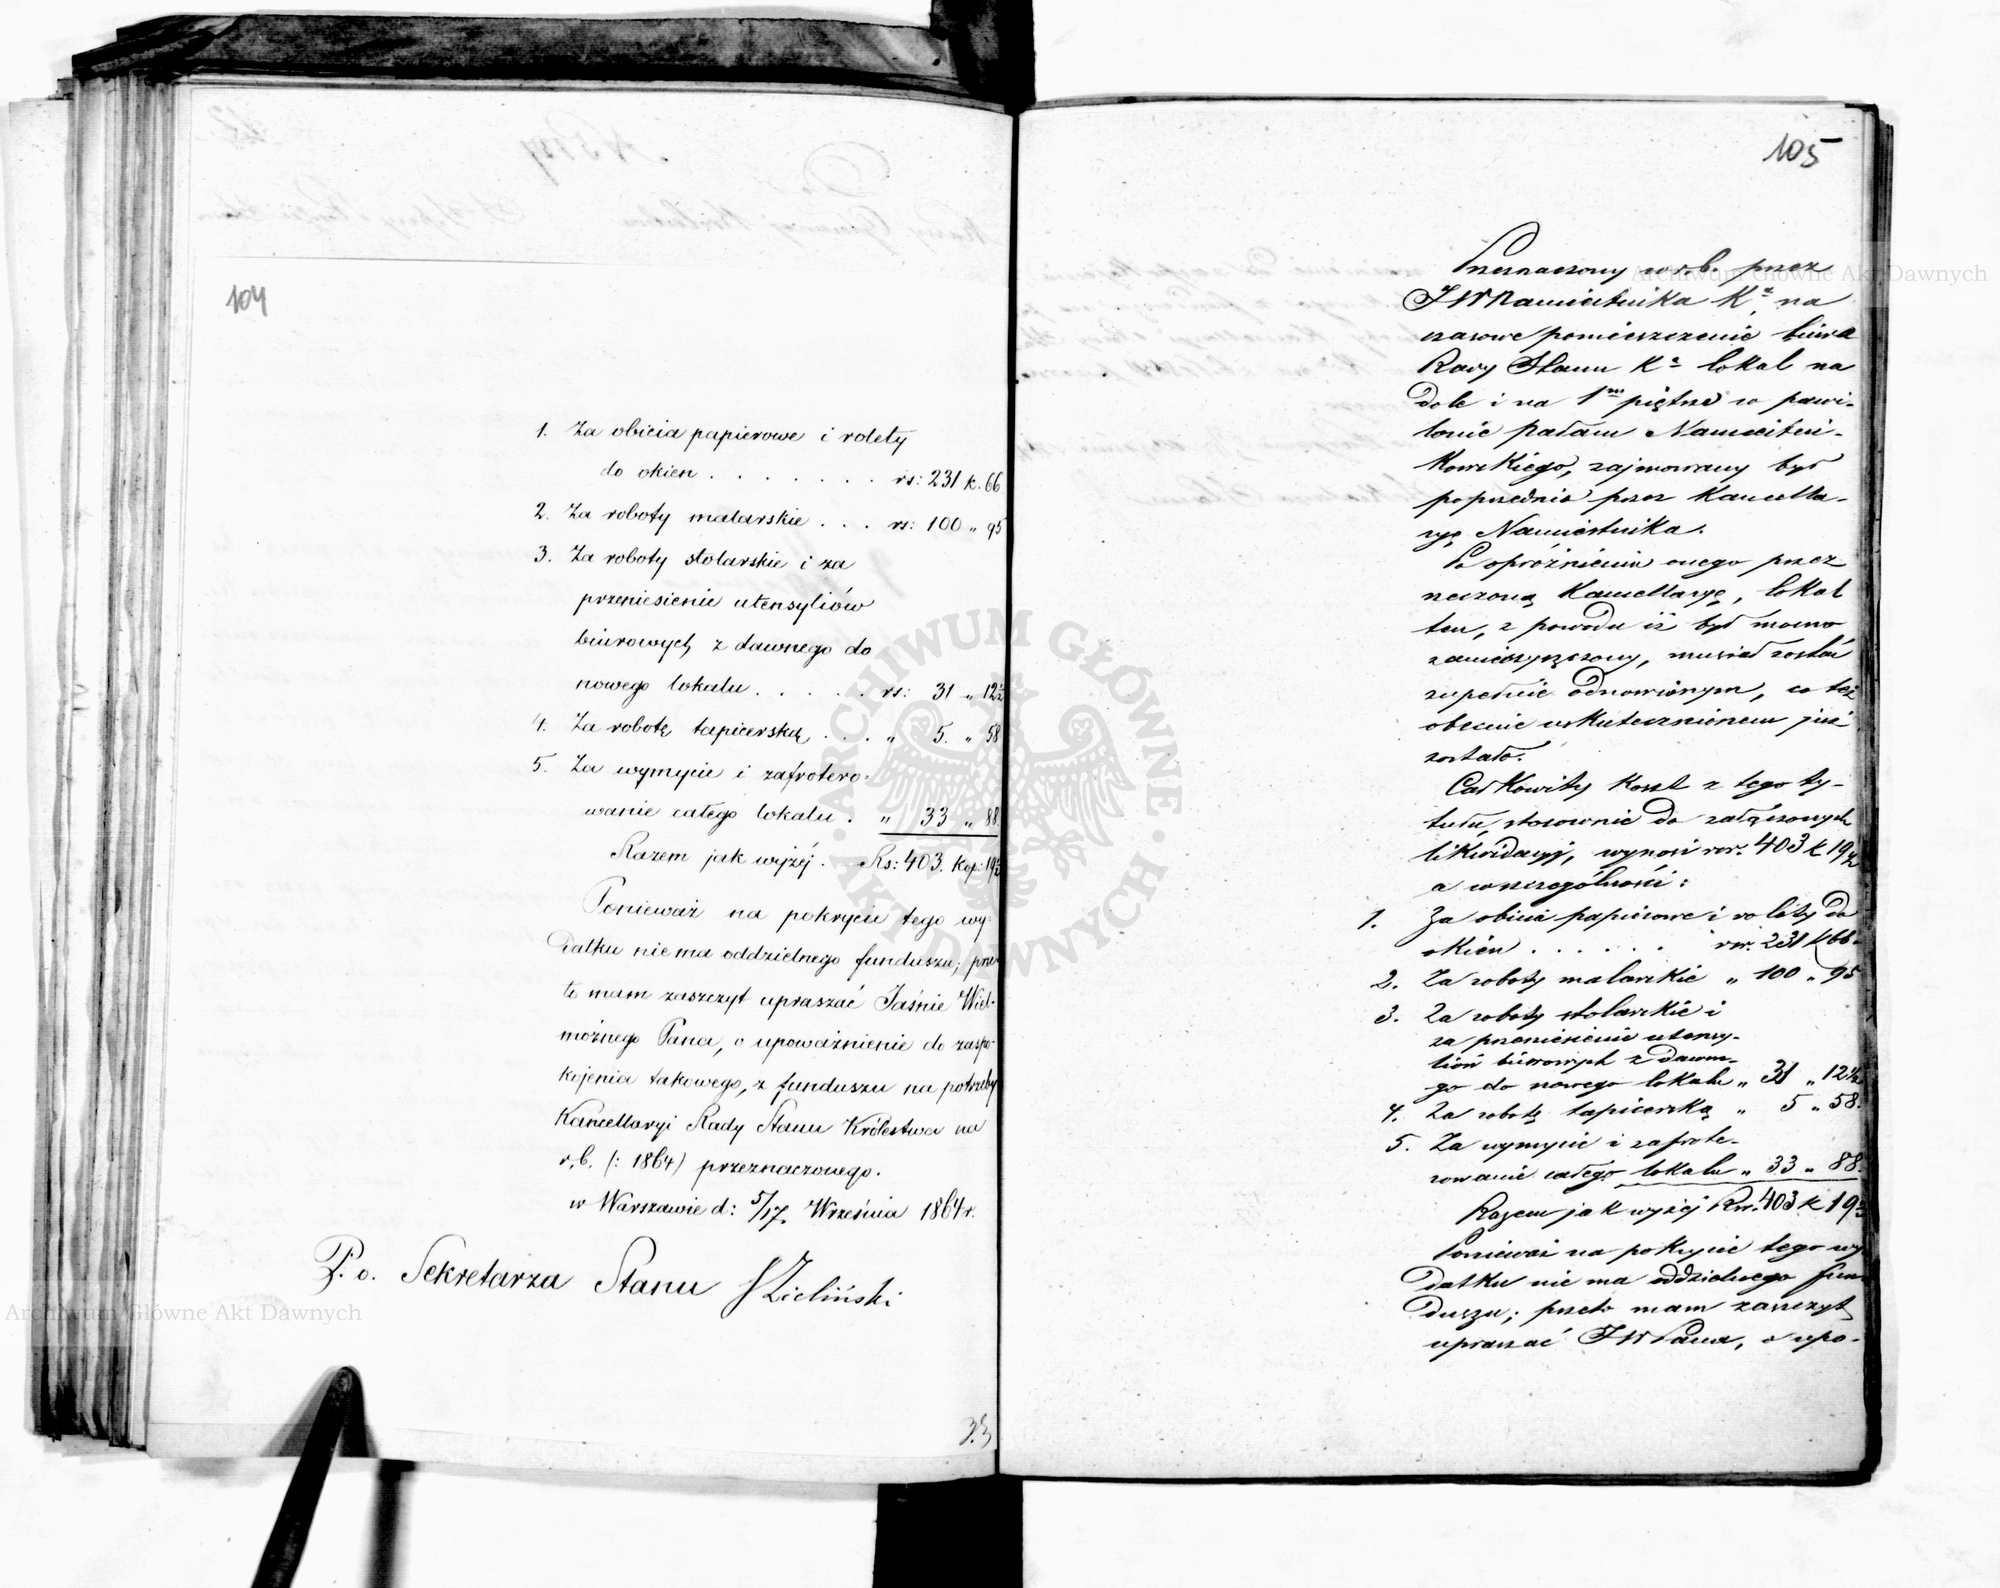 104
1. Za obicia papierowe i rolety
do okien . . . . . . . rs: 231 k. 66
2. Za roboty malarskie . . . rs: 100 „ 95
3. Za roboty stolarskie i za
przeniesienie utensyliów
biurowych z dawnego do
nowego lokalu . . . . . rs: 31 „ 12½
4. Za robotę tapicerską . . . „ 5. „ 58
5. Za wymycie i zafrotero-
wanie całego lokalu . „ 33 „ 88
Razem jak wyżéj . Rs: 403. Kop: 19½
Ponieważ na pokrycie tego wy-
datku nie ma oddzielnego funduszu; prze-
to mam zaszczyt upraszać Jaśnie Wiel-
możnego Pana, o upoważnienie do zaspo-
kojenia takowego, z funduszu na potrzeby
Kancellaryi Rady Stanu Królestwa na
r. b. (: 1864) przeznaczonego.
w Warszawie d: 5/17 Września 1864 r.
P. o. Sekretarza Stanu Zieliński
105
Przeznaczony w r. b. przez
JW Namiestnika Kª na
czasowe pomieszczenie biura
Rady Stanu Kª lokal na
dole i na 1m piętrze w pawi-
lonie pałacu Namiestni-
kowskiego, zajmowany był
poprzednio przez Kancella-
ryę Namiestnika.
Po opróżnieniu onego przez
rzeczoną Kancellaryę, lokal
ten, z powodu iż był mocno
zanieczyszczony, musiał zostać
zupełnie odnowionym, co też
obecnie uskutecznionem już
zostało.
Całkowity koszt z tego ty-
tułu, stosownie do załączonych
likwidacyj, wynosi rsr. 403 k 19½
a w szczególności:
1. Za obicia papierowe i rolety do
okien . . . . . . rsr. 231 k 66.
2. Za roboty malarskie „ 100 „ 95
3. Za roboty stolarskie i
za przeniesienie utensy-
liów biurowych z dawne-
go do nowego lokalu „ 31 „ 12½
4. Za robotę tapicerską „ 5 „ 58.
5. Za wymycie i zafrote-
rowanie całego lokalu „ 33 „ 88.
Razem jak wyżéj Rsr. 403 k 19½
Ponieważ na pokrycie tego wy-
datku nie ma oddzielnego fun-
duszu; przeto mam zaszczyt
upraszać JW Pana, o upo-
Archiwum Główne Akt Dawnych
Archiwum Główne Akt Dawnych
ARCHIWUM GŁÓWNE AKT DAWNYCH